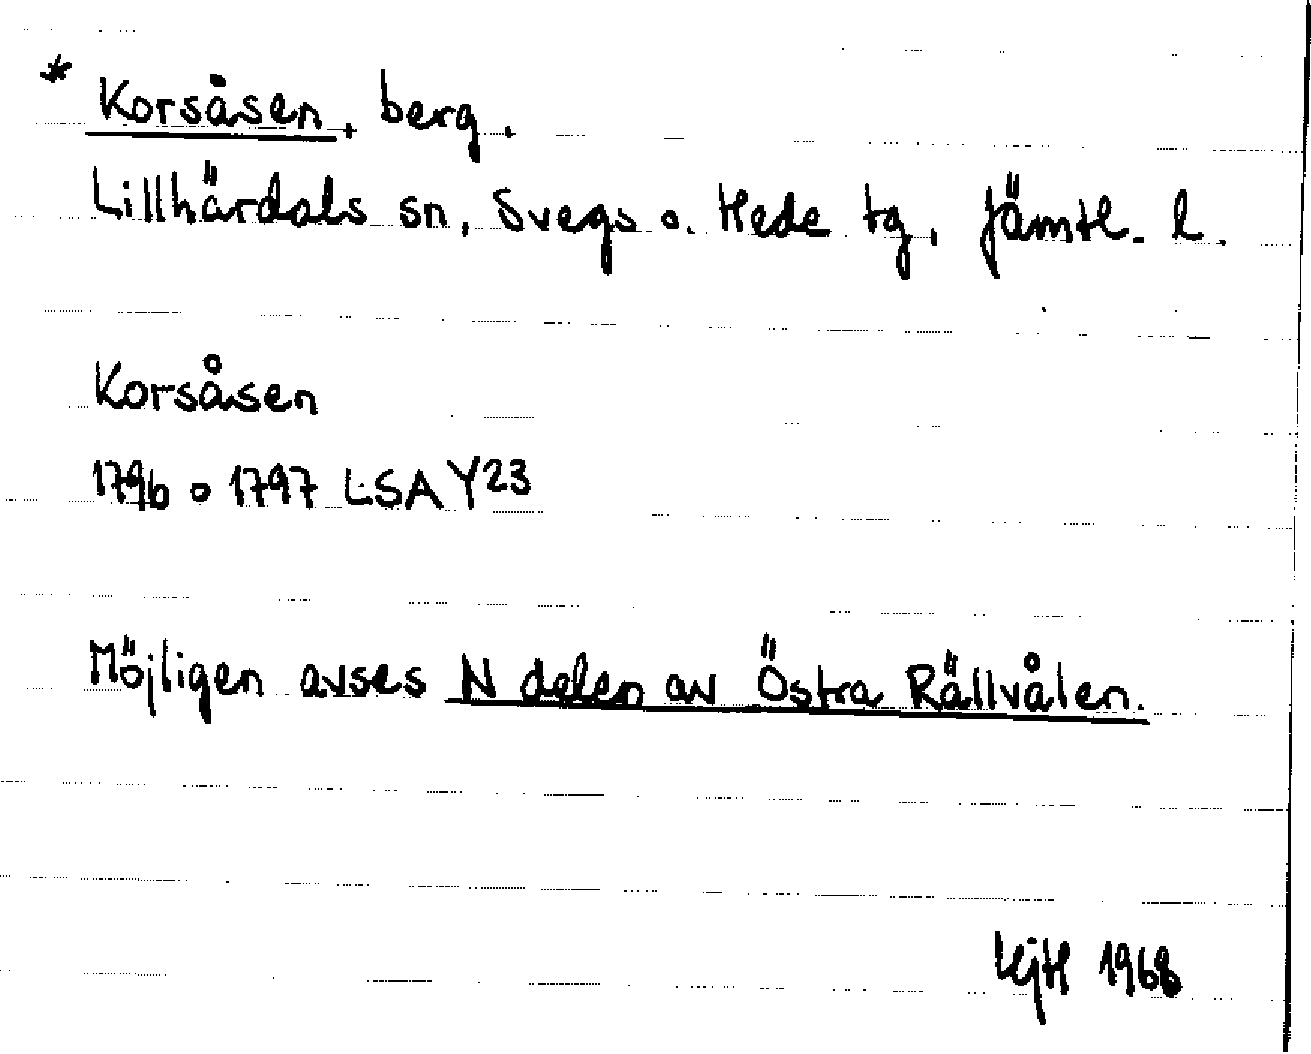 * Korsåsen, berg.
Lillhärdals sn, Svegs o. Hede tg, Jämtl. l.
Korsåsen
1796 o 1797 LSA Y23
Möjligen avses N delen av Östra Rällvålen.
KjH 1968